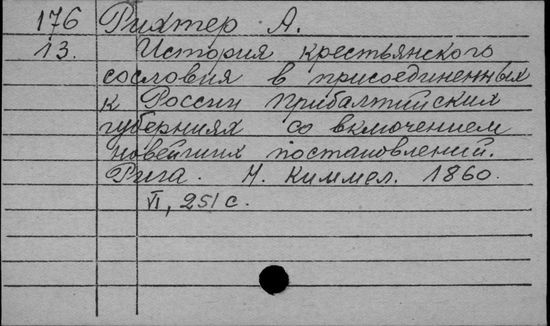 176 Рихтер А.
13. История крестьянского
сословия в присоединенных
к России прибалтийских
губерниях со включением
новейших постановлений.
Рига. Н. Киммел. 1860.
VI, 251 с.